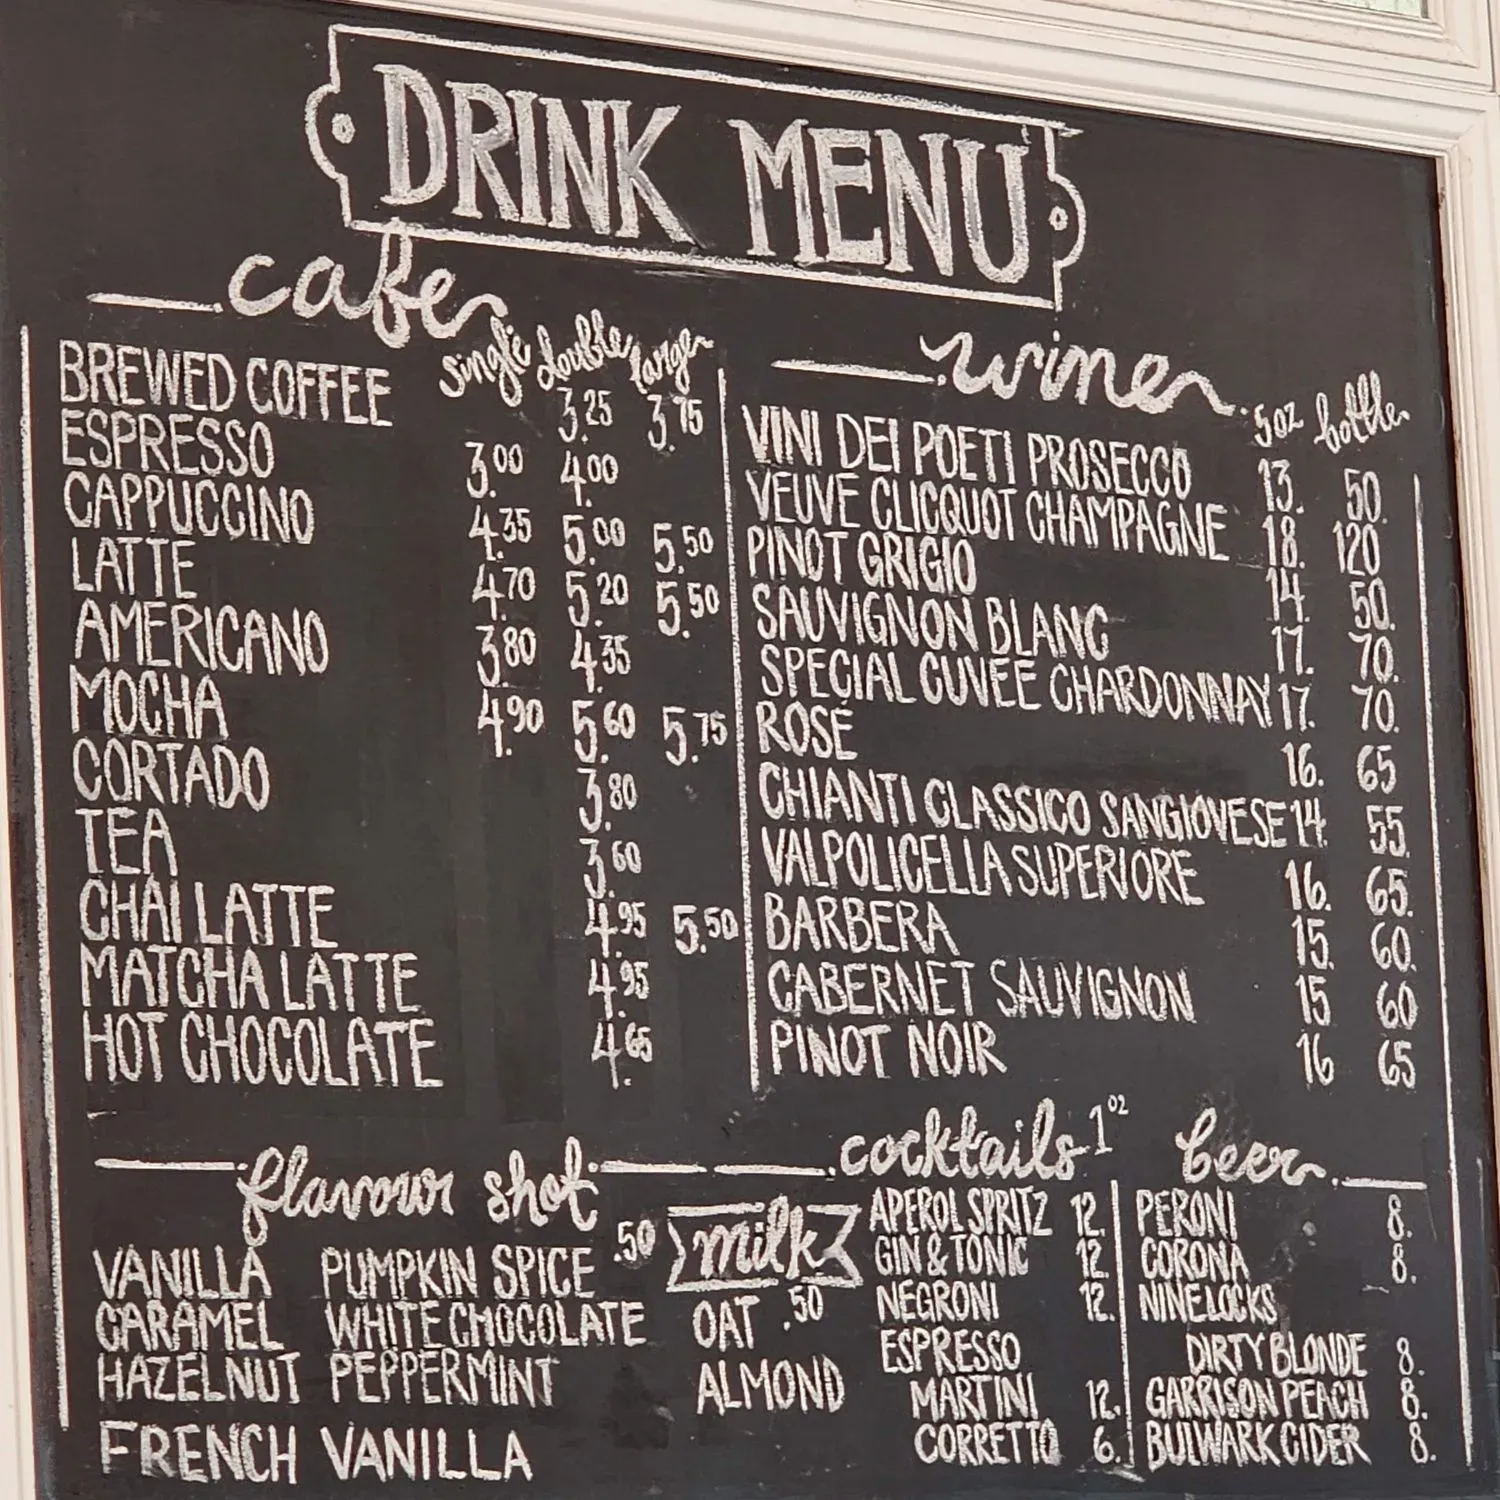 DRINK MENU
cafe
single double large
BREWED COFFEE 3.25 3.75
ESPRESSO 3.00 4.00
CAPPUCCINO 4.35 5.00 5.50
LATTE 4.70 5.20 5.50
AMERICANO 3.80 4.35
MOCHA 4.90 5.60 5.75
CORTADO 3.80
TEA 3.60
CHAI LATTE 4.95 5.50
MATCHA LATTE 4.95
HOT CHOCOLATE 4.65
wine
5oz bottle
VINI DEI POETI PROSECCO 13. 50.
VEUVE CLICQUOT CHAMPAGNE 18. 120
PINOT GRIGIO 14. 50.
SAUVIGNON BLANC 17. 70.
SPECIAL CUVÉE CHARDONNAY 17. 70.
ROSÉ 16. 65
CHIANTI CLASSICO SANGIOVESE 14. 55.
VALPOLICELLA SUPERIORE 16. 65.
BARBERA 15. 60.
CABERNET SAUVIGNON 15 60
PINOT NOIR 16 65
flavour shot .50
VANILLA PUMPKIN SPICE
CARAMEL WHITE CHOCOLATE
HAZELNUT PEPPERMINT
FRENCH VANILLA
milk
OAT .50
ALMOND
cocktails 1oz
APEROL SPRITZ 12.
GIN & TONIC 12.
NEGRONI 12.
ESPRESSO
MARTINI 12.
CORRETTO 6.
beer
PERONI 8.
CORONA 8.
NINELOCKS
DIRTY BLONDE 8.
GARRISON PEACH 8.
BULWARK CIDER 8.